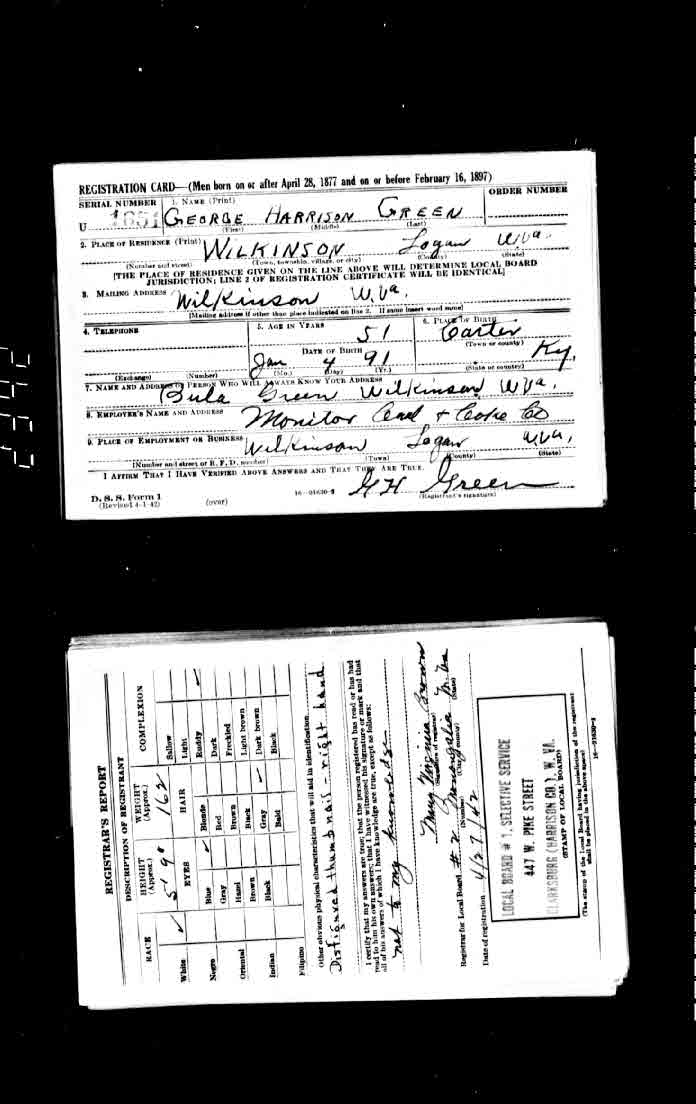 REGISTRATION CARD—(Men born on or after April 28, 1877 and on or before February 16, 1897)
SERIAL NUMBER 1. NAME (Print) ORDER NUMBER
U 1651 GEORGE HARRISON GREEN
(First) (Middle) (Last)
2. PLACE OF RESIDENCE (Print)
WILKINSON Logan W.Va.
(Number and street) (Town, township, village, or city) (County) (State)
[THE PLACE OF RESIDENCE GIVEN ON THE LINE ABOVE WILL DETERMINE LOCAL BOARD
JURISDICTION; LINE 2 OF REGISTRATION CERTIFICATE WILL BE IDENTICAL]
3. MAILING ADDRESS
Wilkinson W.Va.
[Mailing address if other than place indicated on line 2. If same insert word same]
4. TELEPHONE 5. AGE IN YEARS 6. PLACE OF BIRTH
51 Carter
DATE OF BIRTH (Town or county)
Jan 4 91 Ky.
(Exchange) (Number) (Mo.) (Day) (Yr.) (State or country)
7. NAME AND ADDRESS OF PERSON WHO WILL ALWAYS KNOW YOUR ADDRESS
Bula Green Wilkinson W.Va.
8. EMPLOYER'S NAME AND ADDRESS
Monitor Coal + Coke Co
9. PLACE OF EMPLOYMENT OR BUSINESS
Wilkinson Logan W.Va.
(Number and street or R. F. D. number) (Town) (County) (State)
I AFFIRM THAT I HAVE VERIFIED ABOVE ANSWERS AND THAT THEY ARE TRUE.
D. S. S. Form 1
(Revised 4-1-42) (over) 16—21630-2 (Registrant's signature)
G H Green
REGISTRAR'S REPORT
DESCRIPTION OF REGISTRANT
RACE HEIGHT (Approx.) WEIGHT (Approx.) COMPLEXION
5' 9" 162
White ✓ EYES HAIR Sallow
Light
Negro Blue ✓ Blonde Ruddy ✓
Gray Red Dark
Oriental Hazel Brown Freckled
Brown Black Light brown
Indian Black Gray ✓ Dark brown
Bald Black
Filipino
Other obvious physical characteristics that will aid in identification
Disfigured thumb nail - right hand
I certify that my answers are true; that the person registered has read or has had
read to him his own answers; that I have witnessed his signature or mark and that
all of his answers of which I have knowledge are true, except as follows:
not to my knowledge
Virginia Brown
(Signature of registrar)
Registrar for Local Board #2 W. Va
(Number) (City or county) (State)
Date of registration 4/27/42
LOCAL BOARD # 1, SELECTIVE SERVICE
447 W. PIKE STREET
CLARKSBURG (HARRISON CO.), W. VA.
(STAMP OF LOCAL BOARD)
(The stamp of the Local Board having jurisdiction of the registrant
shall be placed in the above space)
16—21630-2